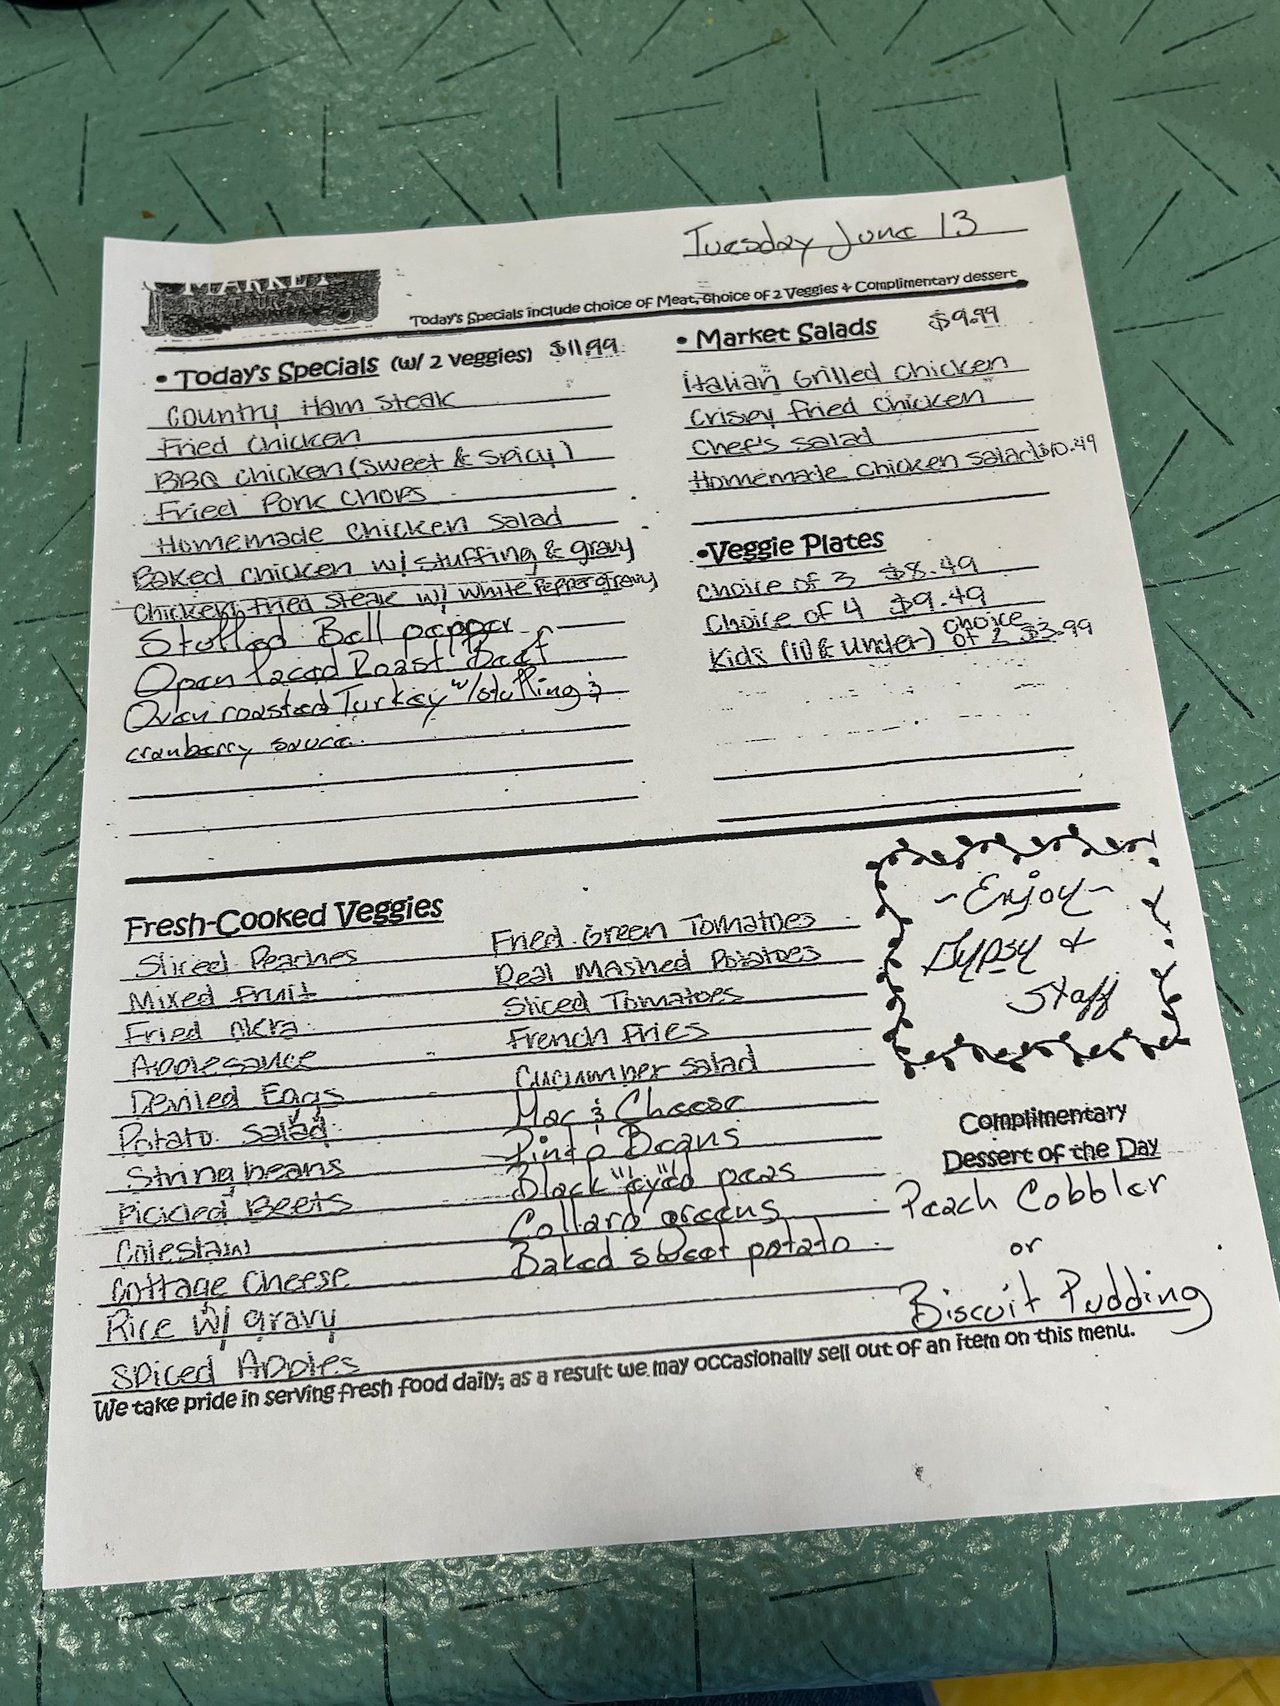 Tuesday June 13
MARKET
RESTAURANT
Today's Specials include choice of Meat, Choice of 2 Veggies + Complimentary dessert
• Today's Specials (w/ 2 veggies) $11.99
Country Ham Steak
Fried Chicken
BBQ Chicken (Sweet & Spicy)
Fried Pork Chops
Homemade Chicken Salad
Baked Chicken w/ Stuffing & gravy
Chicken Fried Steak w/ White Pepper Gravy
Stuffed Bell pepper
Open faced Roast Beef
Oven roasted Turkey w/ stuffing &
cranberry sauce
• Market Salads $9.99
Italian Grilled Chicken
Crispy Fried Chicken
Chef's Salad
Homemade Chicken Salad $10.49
• Veggie Plates
Choice of 3 $8.49
Choice of 4 $9.49
Kids (10 & under) choice of 2 $3.99
Fresh-Cooked Veggies
Sliced Peaches
Mixed Fruit
Fried Okra
Applesauce
Deviled Eggs
Potato Salad
String beans
Pickled Beets
Coleslaw
Cottage Cheese
Rice w/ gravy
Spiced Apples
Fried Green Tomatoes
Real Mashed Potatoes
Sliced Tomatoes
French Fries
Cucumber Salad
Mac & Cheese
Pinto Beans
Black "eye"d peas
Collard greens
Baked sweet potato
~Enjoy~
Gypsy &
Staff
Complimentary
Dessert of the Day
Peach Cobbler
or
Biscuit Pudding
We take pride in serving fresh food daily; as a result we may occasionally sell out of an item on this menu.